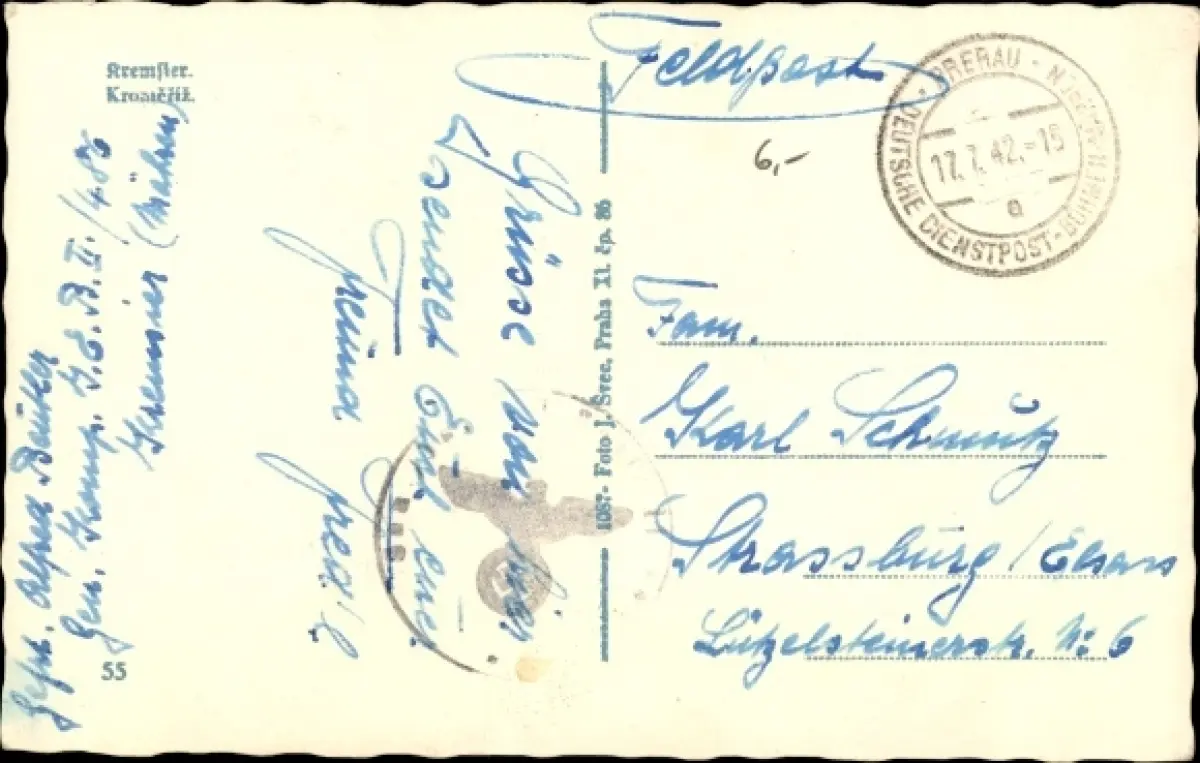 Kremsier.
Kroměříž.
Gefr. Alfred
Gen. Komp. G.E.B. II./486
Kremsier (Mähren)
55
Grüsse von hier
sendet Euch euer
Freund
1087- Foto J. Švec, Praha XI. čp. 86
Feldpost
6,-
PRERAU - NÜRNBERG
DEUTSCHE DIENSTPOST - BÖHMEN
17.7.42.-15
a
Fam.
Karl Schmutz
Strassburg / Elsass
Lützelsteinerstr. N: 6